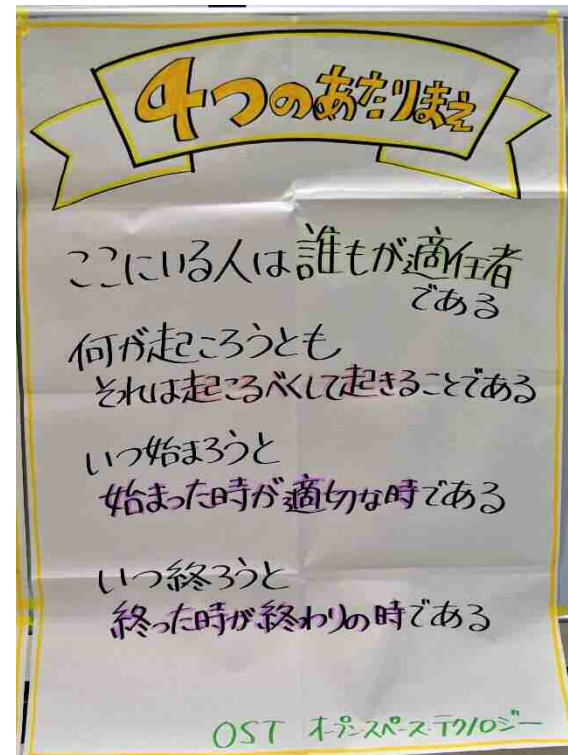 4つのあたりまえ
ここにいる人は誰もが適任者
である
何が起ころうとも
それは起こるべくして起きることである
いつ始まろうと
始まった時が適切な時である
いつ終ろうと
終った時が終わりの時である
OST オープンスペース・テクノロジー